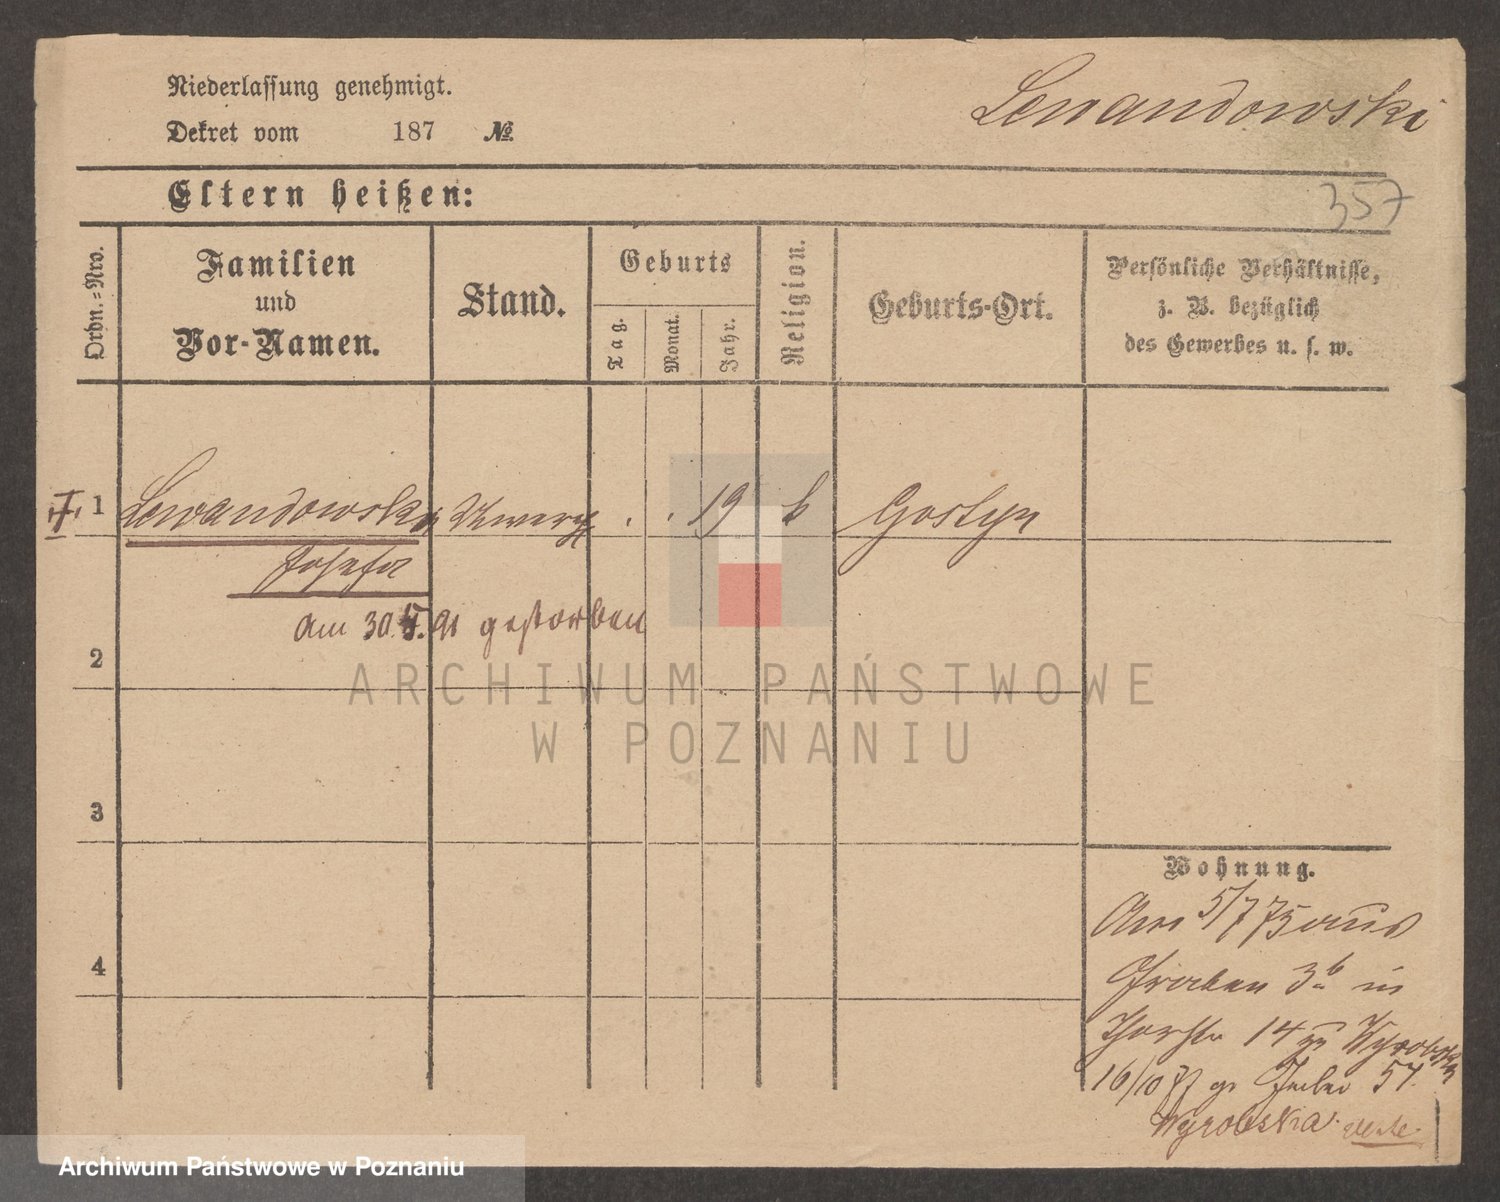 Niederlassung genehmigt.
Lewandowski
Dekret vom 187 №
Eltern heißen:
357
Ordn.=Nro.
Familien
und
Vor-Namen.
Stand.
Geburts
Tag.
Monat.
Jahr.
Religion.
Geburts-Ort.
Persönliche Verhältnisse,
z. B. bezüglich
des Gewerbes u. s. w.
1 Lewandowska 19 k Gostyn
Josefa
am 30. gestorben
2
ARCHIWUM PAŃSTWOWE
W POZNANIU
3
4
Wohnung.
Am 5/7 75 aus
Graben 3b in
14 zu Wyrobska
16/10 57
Wyrobska
Archiwum Państwowe w Poznaniu